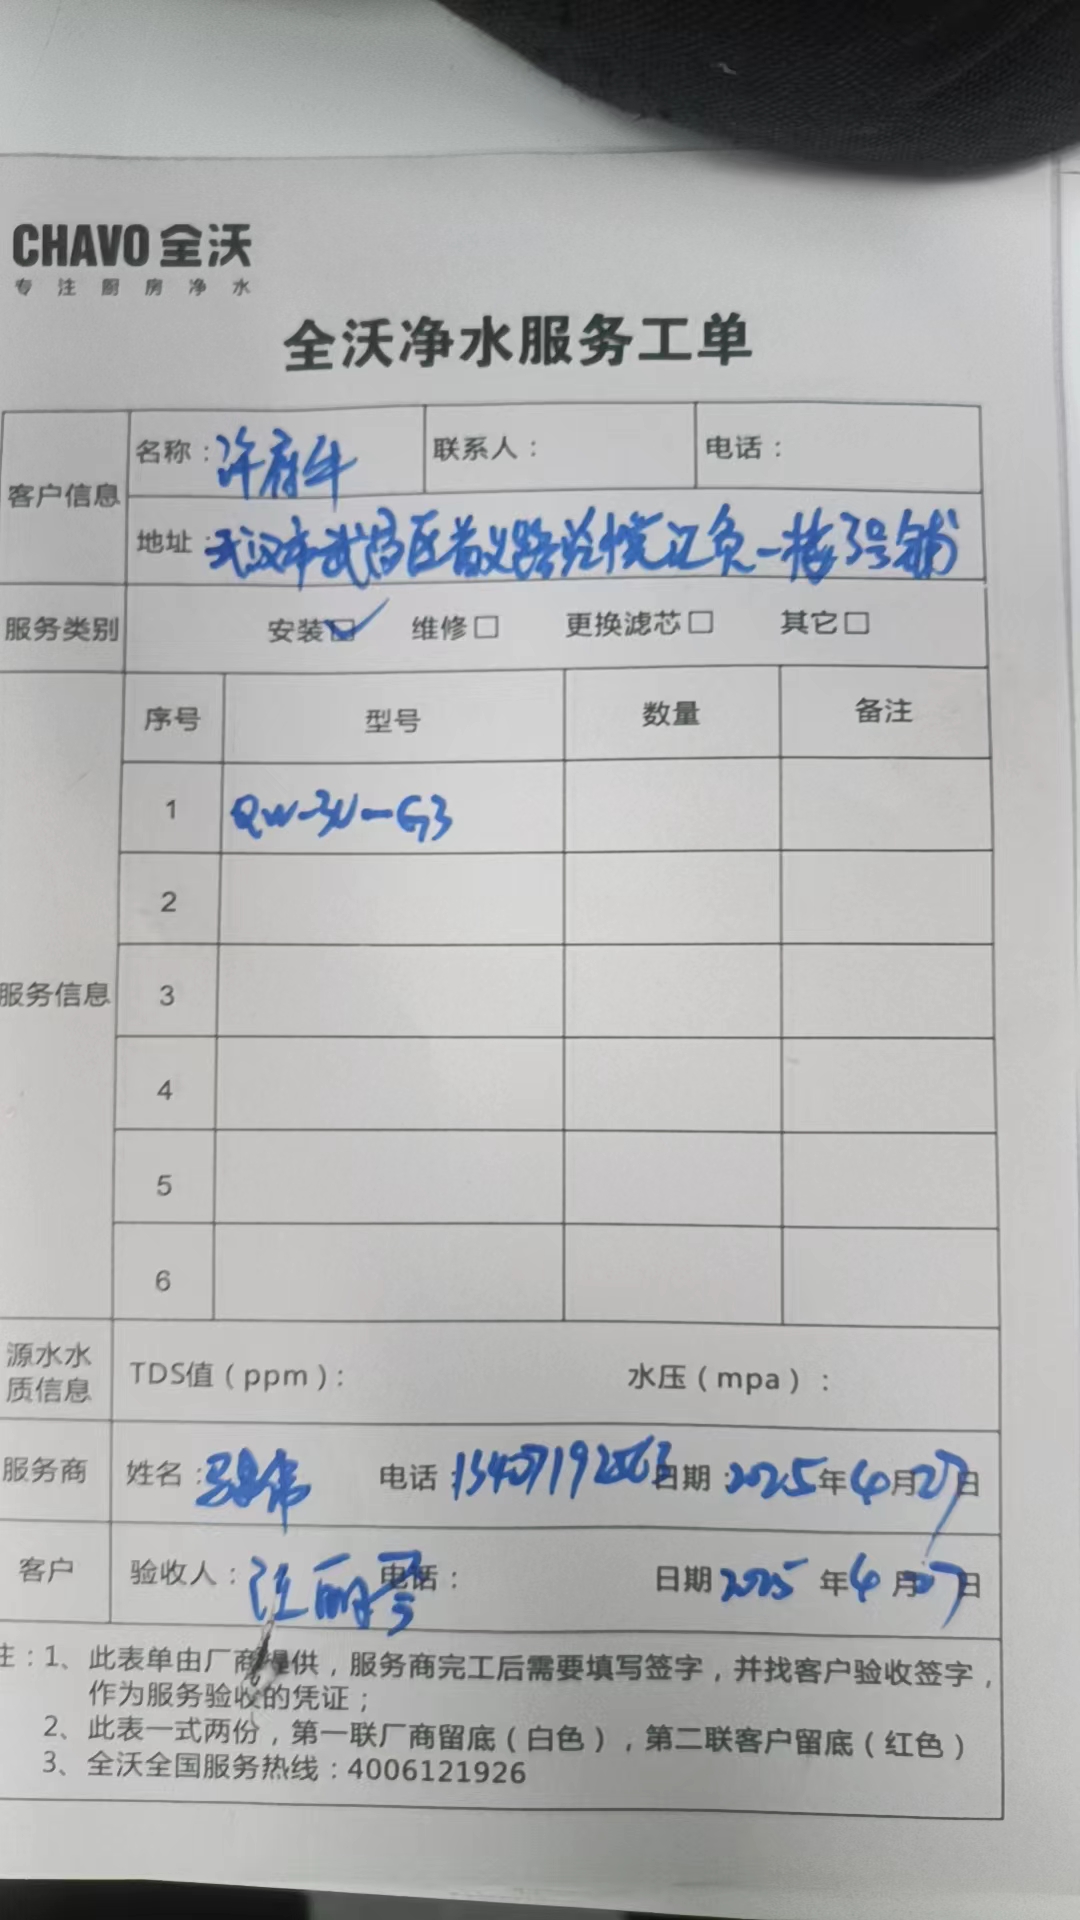 CHAVO 全沃
专注厨房净水
全沃净水服务工单
客户信息 名称：许府牛 联系人： 电话：
地址：武汉市武昌区首义路 负一楼3号铺
服务类别 安装☑ 维修□ 更换滤芯□ 其它□
服务信息 序号 型号 数量 备注
1 QW-3U-G3
2
3
4
5
6
源水水质信息 TDS值（ppm）： 水压（mpa）：
服务商 姓名： 电话： 日期：2025年4月27日
客户 验收人：汪丽琴 电话： 日期 2025年4月27日
注：1、此表单由厂商提供，服务商完工后需要填写签字，并找客户验收签字，
作为服务验收的凭证；
2、此表一式两份，第一联厂商留底（白色），第二联客户留底（红色）
3、全沃全国服务热线：4006121926